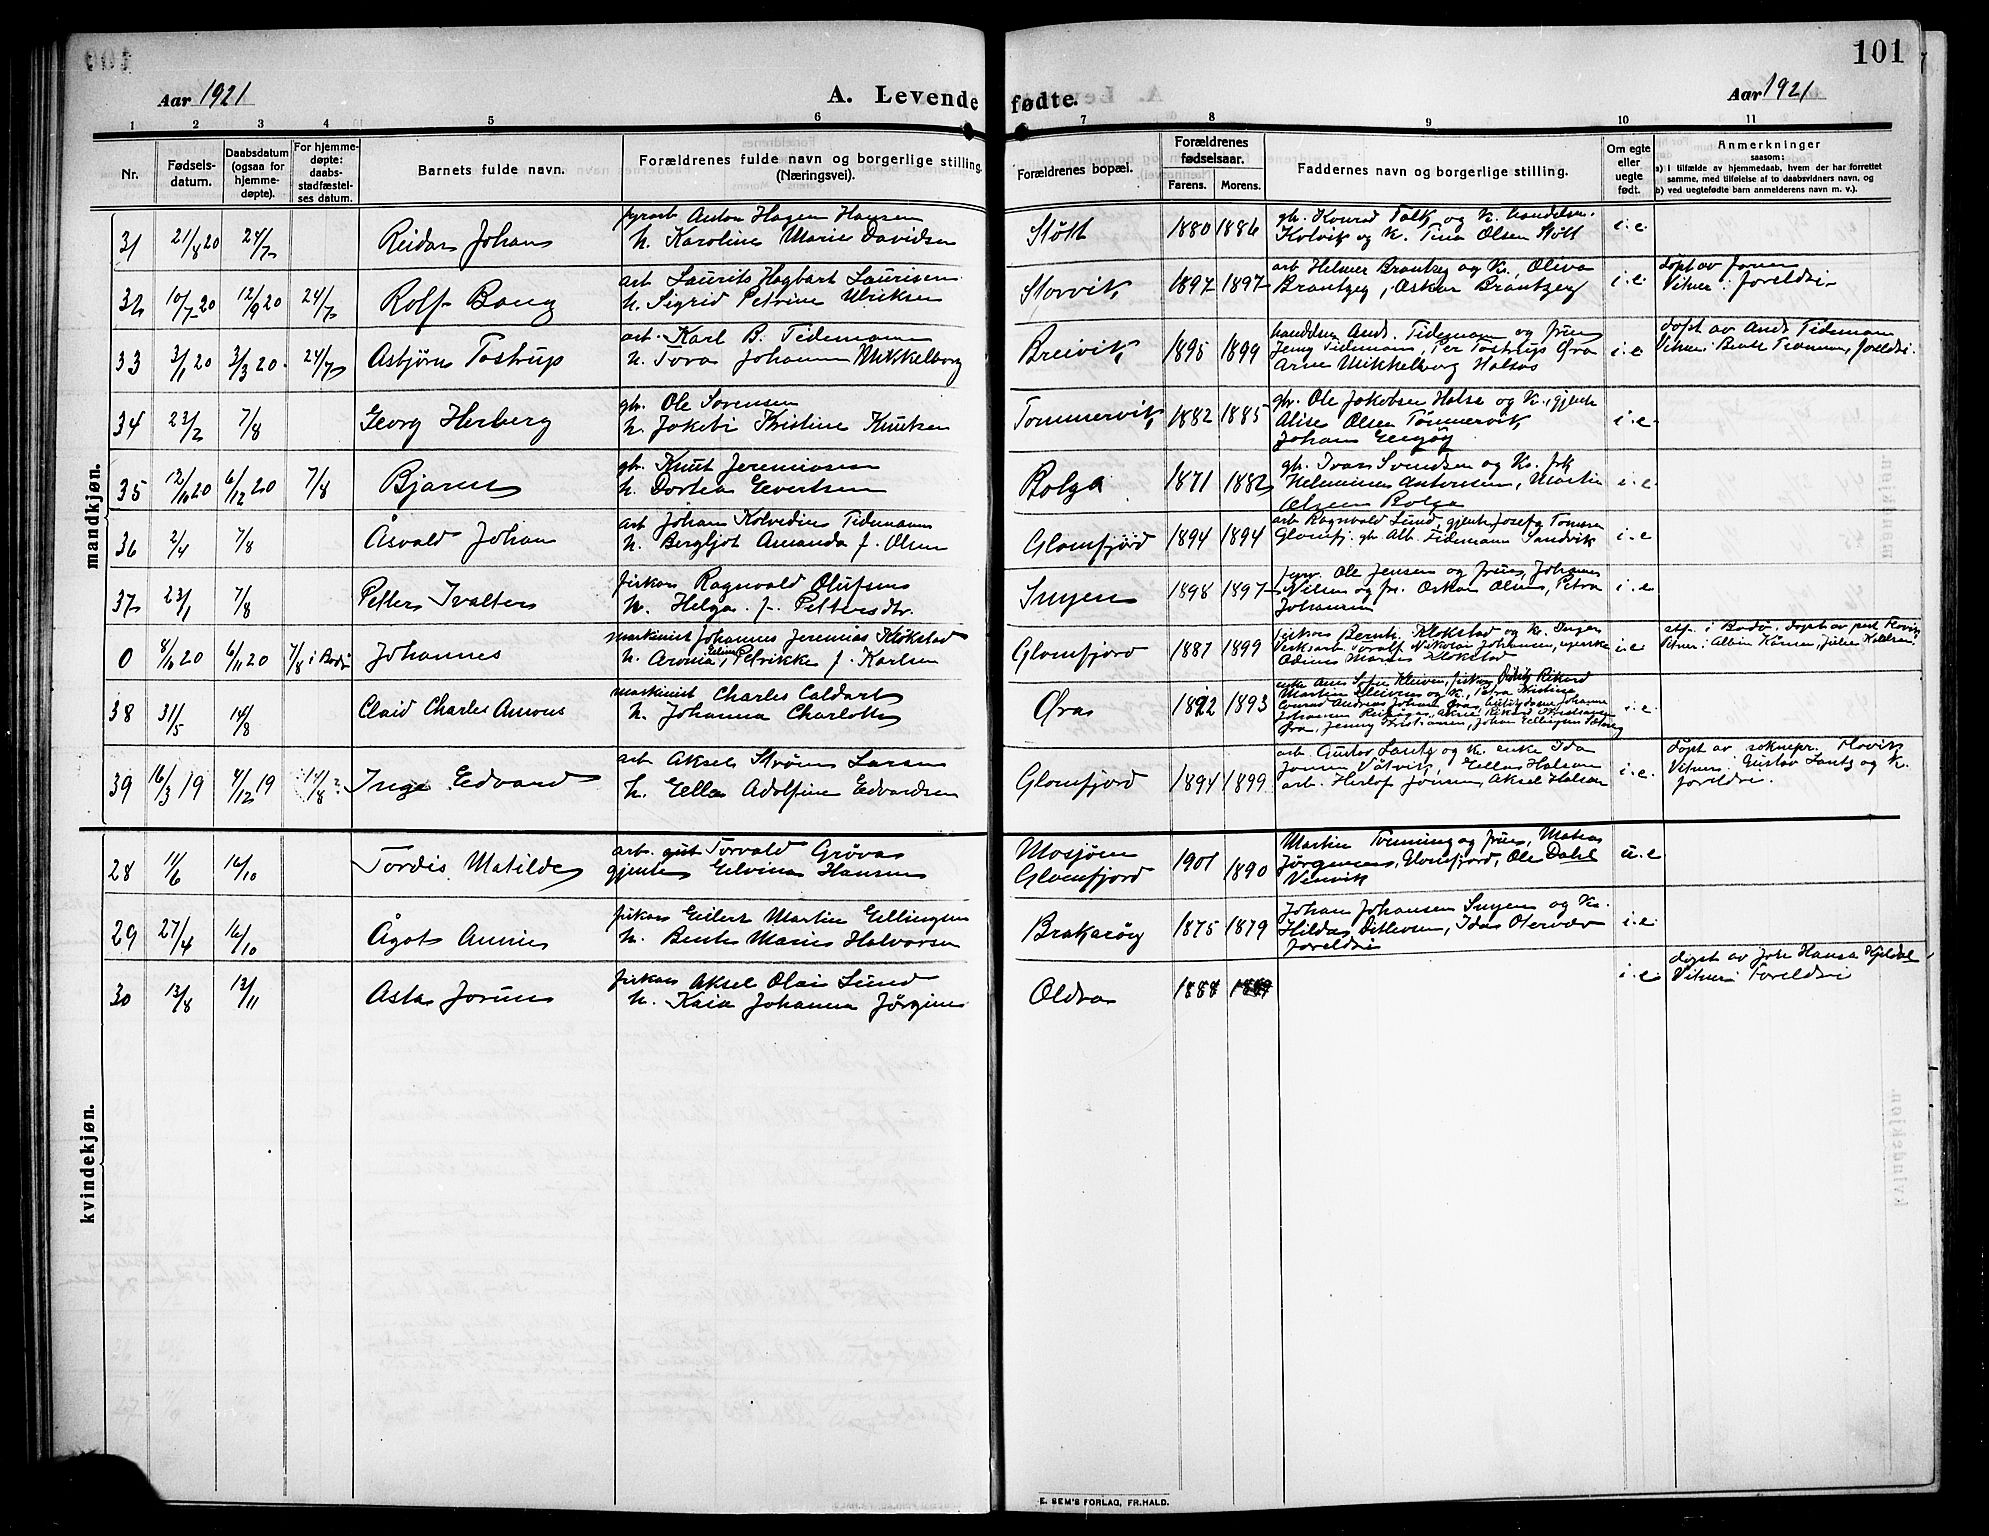 101
Aar 1921
A. Levende fødte.
Aar 1921
1 2 3 4 5 6 7 8 9 10 11
Nr.
Fødsels-
datum.
Daabsdatum
(ogsaa for
hjemme-
døpte).
For hjemme-
døpte:
daabs-
stadfæstel-
ses datum.
Barnets fulde navn.
Forældrenes fulde navn og borgerlige stilling.
(Næringsvei).
Forældrenes bopæl.
Forældrenes
fødselsaar.
Farens. Morens.
Faddernes navn og borgerlige stilling.
Om egte
eller
uegte
født.
Anmerkninger
saasom:
a) i tilfælde av hjemmedaab, hvem der har forrettet
samme, med tilføielse af to daabsvidners navn, og
b) ved uegtefødte barn anmelderens navn m. v.).
mandkjøn.
31 21/8 20 24/7 Reidar Johan
fyrarb Anton Hagen Hansen
h. Karoline Marie Davidsen
Støtt 1880 1886
gb. Konrad Falk og K. handelsm.
Kolvik og K. Tina Olsen Støtt
i.e.
32 10/7 20 12/9 20 24/7 Rolf Bang
arb Laurits Hagbart Lauritsen
h. Sigrid Petrine Ulriksen
Storvik 1897 1897
arb Helmer Brantzeg og K., Oliva
Brantzeg, Oskar Brantzeg
i.e.
døpt av
Vitner: foreldri
33 3/1 20 3/3 20 24/7 Asbjørn Tostrup
arb. Karl B. Tidemann
h. Tora Johanna Mikkelborg
Breivik 1895 1899
handelsm And. Tidemann og frue
Jenny Tidemann, Per Tostrup Øra
Arne Mikkelborg Halsos
i.e
døpt av And. Tidemann
Vitner: Bente Tidemann, foreldri.
34 23/2 7/8 Georg Herberg
gb. Ole Sørensen
h. Jakobi Kristine Knutsen
Tommervik 1882 1885
gb. Ole Jakobsen Halsa og K., gjente
Alise Olsen Tømmervik
Johan Engøy
i.e
35 12/10 20 6/12 20 7/8 Bjarne
gb. Knut Jeremiassen
h. Dortea Evertsen
Bolga 1871 1882
gb. Ivar Svendsen og K. frk
Helmine Antonsen, Martin
Olsen Bolga
i.e.
36 2/4 7/8 Åsvald Johan
arb Johan Kolvedin Tidemann
h. Bergljot Amanda f. Olsen
Glomfjord 1894 1894
arb Ragnvald Lund, gjente Josefa Tomsen
Glomfj. gb Alb. Tidemann Sandvik
i.e
37 23/1 7/8 Petter Ivalter
fiskar Ragnvald Olufsen
h. Helga f. Pettersdtr.
Svyen 1898 1897
fyrv. Ole Jensen og frue, Johannes
Nilsen og fr. Oskar Olsen, Petra
Johansen
i.e
0 8/10 20 6/11 20 7/8 i Bodø Johannes
maskinist Johannes Jeremias Klokstad
h. Aronia Elina Petrikke f. Karlsen
Glomfjord 1887 1899
fiskar Bernh. Klokstad og K. Inger
Verksarb. Toralf Nikolai Johansen, gjente
Adine Marie Klokstad
i.e
stf. i Bodø. døpt av past Hovig
Vitner: Albin Karlsen, Julie Karlsen
38 31/5 14/8 Claid Charles Amons
maskinist Charles Caldart
h. Johanna Charlotta
Øra 1892 1893
i.e.
39 16/3 19 4/12 19 14/8 Inge Edvard
arb Aksel Strøm Larsen
h. Ella Adolfine Edvardsen
Glomfjord 1894 1899
arb. Gustav Lantz og K. enke Ida
Jonsen Våtvik, Ella Halsen
arb. Herlof Jønsen, Aksel Halsen
i.e.
døpt av soknepr. Hovig
Vitner: Gustav Lantz og K.
foreldri.
kvindekjøn.
28 11/6 16/10 Tordis Matilde
arb. gut Torvald Grøvas
gjente Elvina Hansen
Mosjøen
Glomfjord 1901 1890
Martin Tenning og frue, Matea
Jørgensen, Glomfjord, Ole Dahl
u.e
29 27/4 16/10 Ågot Annie
fiskar Eilert Martin Ellingsen
h. Bente Marie Halvorsen
Braksøy 1875 1879
Johan Johansen Svyen og K.
Hilda Ditlevsen, Ida Olsen
foreldri
i.e.
30 13/8 13/11 Asta Jorun
fiskar Aksel Olai Lund
h. Kaia Johanna Jørgine
Oldra 1888
i.e.
døpt av Joh. Hansa Kjeldal
Vitner: Foreldri
E. SEM'S FORLAG, FR.HALD.